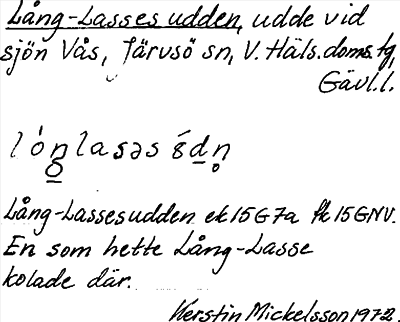 Lång-Lasses udden, udde vid
sjön Vås, Järvsö sn, V. Häls. doms. tg,
Gävl.l.
Lång-Lassesudden ek 15G7a fk 15GNV.
En som hette Lång-Lasse
kolade där.
Kerstin Mickelsson 1972.